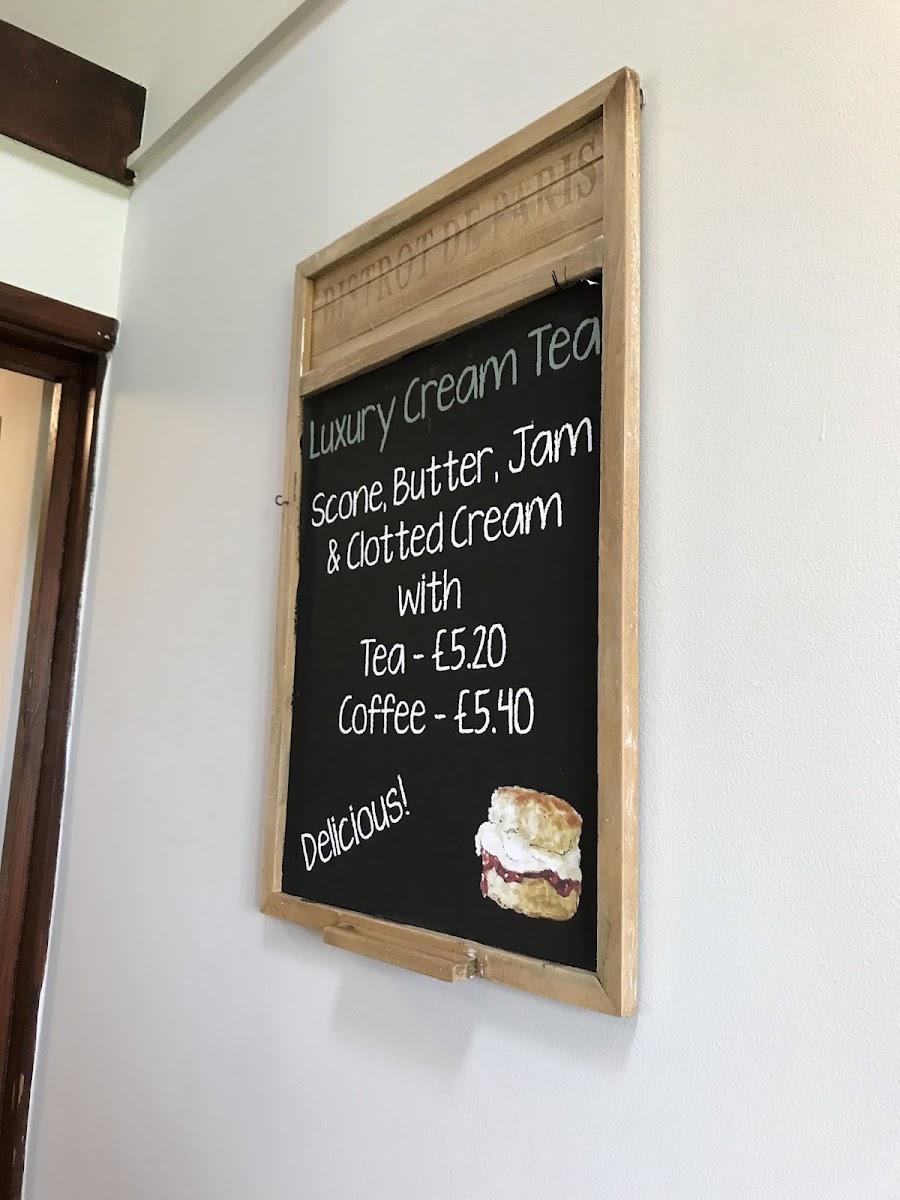 BISTROT DE PARIS
Luxury Cream Tea
Scone, Butter, Jam
& Clotted Cream
with
Tea - £5.20
Coffee - £5.40
Delicious!